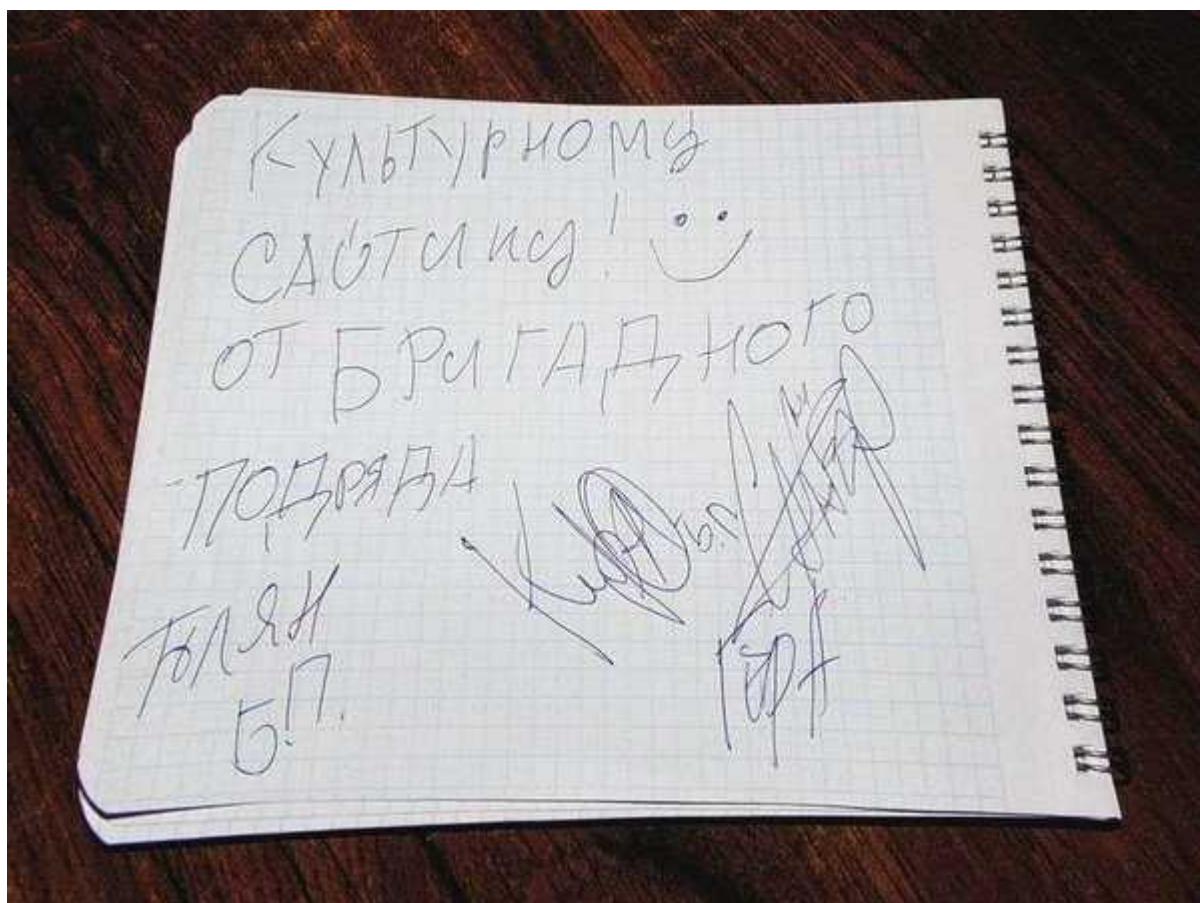 КУЛЬТУРНОМУ
САЙТИКУ!
ОТ БРИГАДНОГО
ПОДРЯДА
ТОЛЯН
Б.П.
Б.П.
ГОРА